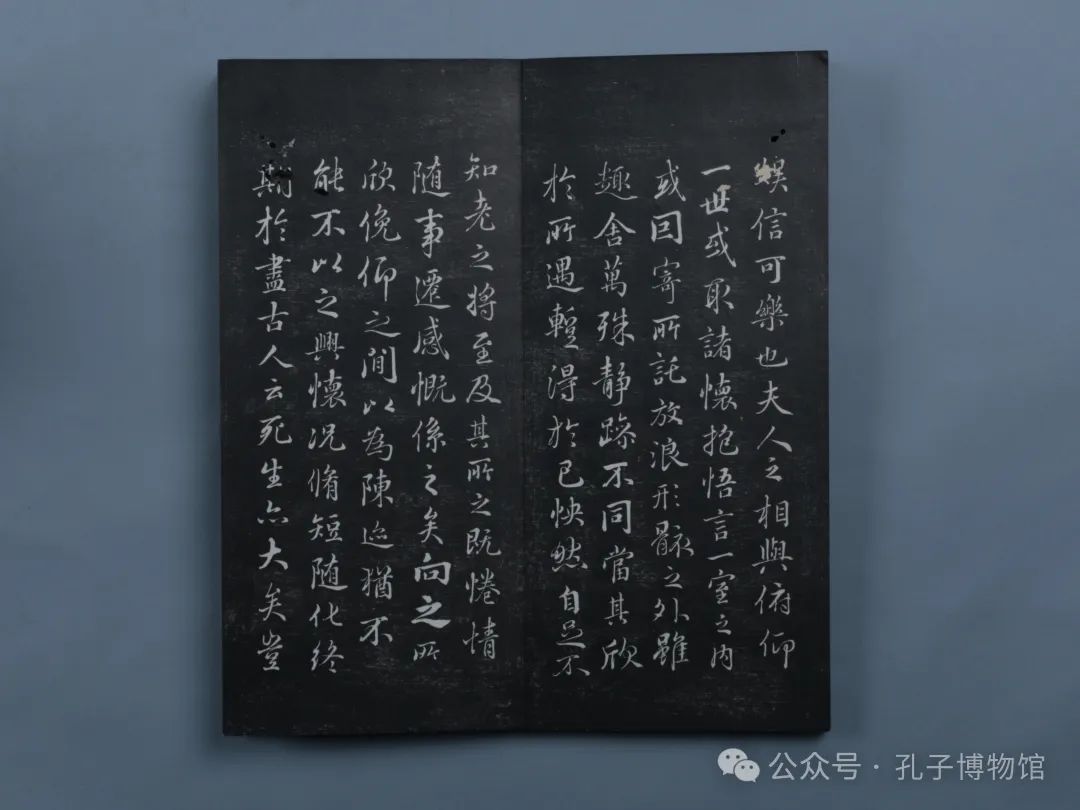 娛信可樂也夫人之相與俯仰
一世或取諸懷抱悟言一室之內
或因寄所託放浪形骸之外雖
趣舍萬殊靜躁不同當其欣
於所遇蹔得於己怏然自足不
知老之將至及其所之既惓情
隨事遷感慨係之矣向之所
欣俛仰之閒以為陳迹猶不
能不以之興懷況脩短隨化終
期於盡古人云死生亦大矣豈
公众号 · 孔子博物馆